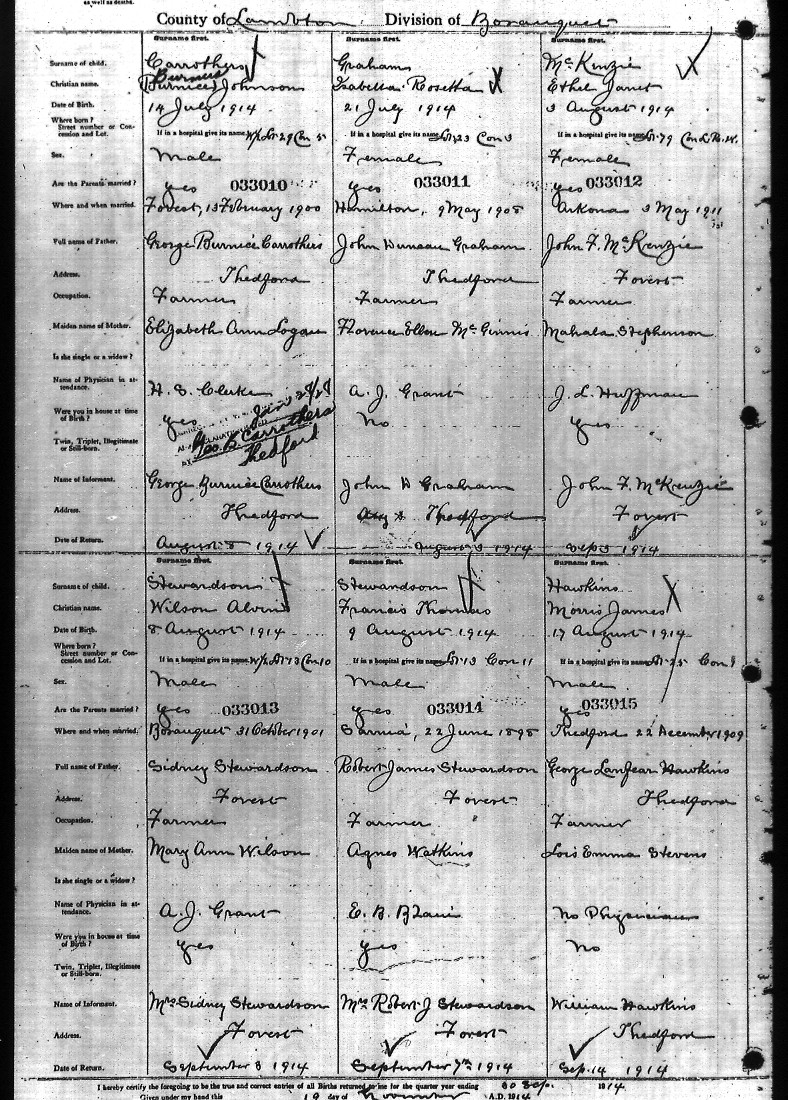 as well as deaths.
County of Lambton Division of Bosanquet
Surname first. Surname first. Surname first.
Surname of child. Carrothers Graham McKenzie
Burnice
Christian name. Burnice Johnson Isabella Rosetta Ethel Janet
Date of Birth. 14 July 1914 21 July 1914 3 August 1914
Where born?
Street number or Concession and Lot. If in a hospital give its name W½ Lot 29 Con 5 If in a hospital give its name Lot 23 Con 3 If in a hospital give its name Lot 79 Con L.R.W.
Sex. Male Female Female
Are the Parents married? yes 033010 yes 033011 yes 033012
Where and when married. Forest, 13 February 1900 Hamilton, 9 May 1908 Arkona 3 May 1911
Full name of Father. George Burnice Carrothers John Duncan Graham John F. McKenzie
Address. Thedford Thedford Forest
Occupation. Farmer Farmer Farmer
Maiden name of Mother. Elizabeth Ann Logan Florence Ellen McGinnis Mahala Stephenson
Is she single or a widow?
Name of Physician in attendance. H. S. Clerke A. J. Grant J. L. Huffman
Were you in house at time of Birth? yes No yes
Jan
Geo. B. Carrothers
Thedford
Twin, Triplet, Illegitimate or Still-born.
Name of Informant. George Burnice Carrothers John D Graham John F. McKenzie
Address. Thedford Thedford Forest
Date of Return. August 8 1914 August 3 1914 Sep 5 1914
Surname first. Surname first. Surname first.
Surname of child. Stewardson Stewardson Hawkins
Christian name. Wilson Alvin Francis Thomas Morris James
Date of Birth. 8 August 1914 9 August 1914 17 August 1914
Where born?
Street number or Concession and Lot. If in a hospital give its name W½ Lot 13 Con 10 If in a hospital give its name Lot 13 Con 11 If in a hospital give its name Lot 25 Con
Sex. Male Male Male
Are the Parents married? yes 033013 yes 033014 yes 033015
Where and when married. Bosanquet 31 October 1901 Sarnia, 22 June 1898 Thedford 22 December 1909
Full name of Father. Sidney Stewardson Robert James Stewardson George Lanfear Hawkins
Address. Forest Forest Thedford
Occupation. Farmer Farmer Farmer
Maiden name of Mother. Mary Ann Wilson Agnes Watkins Lois Emma Stevens
Is she single or a widow?
Name of Physician in attendance. A. J. Grant E. B. No Physician
Were you in house at time of Birth? yes yes No
Twin, Triplet, Illegitimate or Still-born.
Name of Informant. Mrs Sidney Stewardson Mrs Robert J Stewardson William Hawkins
Address. Forest Forest Thedford
Date of Return. September 8 1914 September 7th 1914 Sep. 14 1914
I hereby certify the foregoing to be the true and correct entries of all Births returned to me for the quarter year ending 30 Sep. 1914.
Given under my hand this 19 day of November A.D. 1914